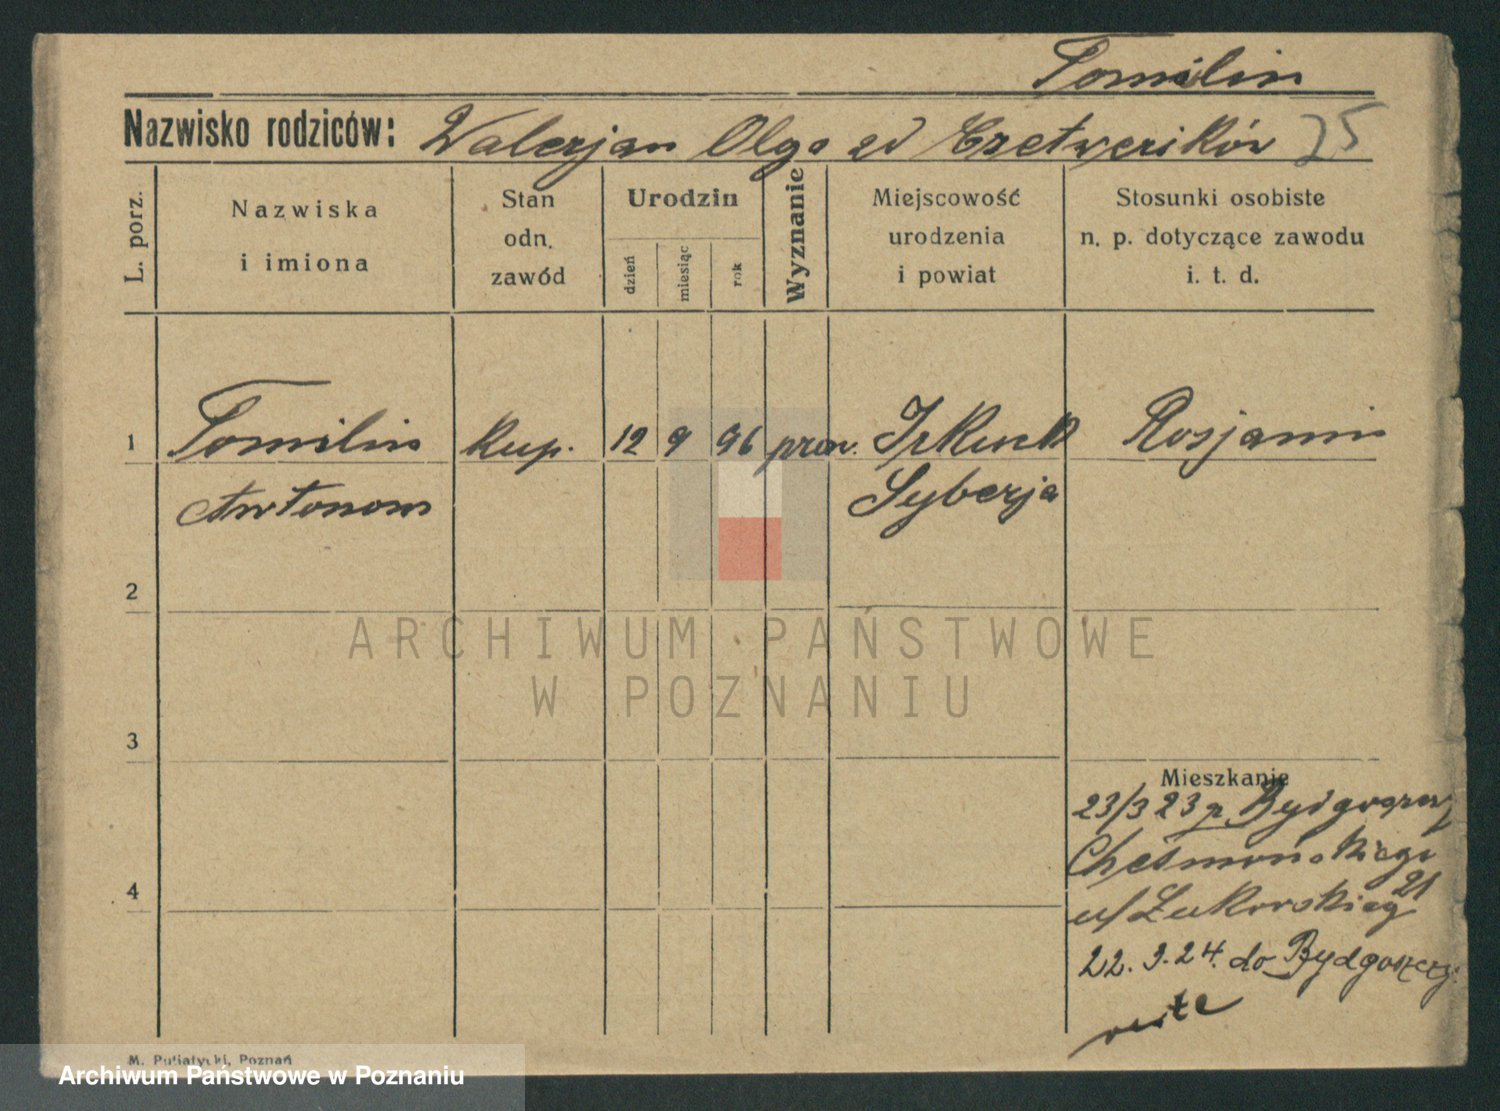 Tomilin
Nazwisko rodziców: Walerjan Olga zd Czetwerików 25
L. porz.
Nazwiska
i imiona
Stan
odn.
zawód
Urodzin
dzień
miesiąc
rok
Wyznanie
Miejscowość
urodzenia
i powiat
Stosunki osobiste
n. p. dotyczące zawodu
i. t. d.
1 Tomilin kup. 12 9 96 praw. Irkuck Rosjanin
Awtonom Syberja
2
ARCHIWUM PAŃSTWOWE
W POZNANIU
3
Mieszkanie
23/3 23 z Bydgoszczy
Chełmońskiego 21
u/Żukowskiego
4
22. 9. 24. do Bydgoszczy
M. Putiatycki, Poznań
Archiwum Państwowe w Poznaniu